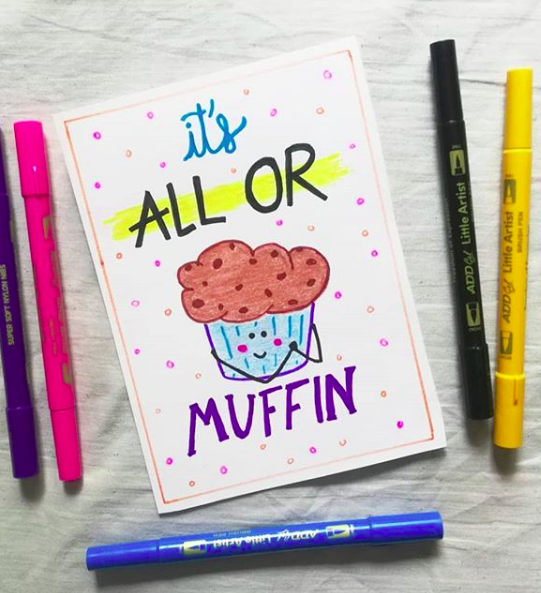 it's
ALL OR
MUFFIN
SUPER SOFT NYLON NIBS
ADD Gel Little Artist
ADD Gel Little Artist
BRUSH PEN
ADD Gel Little Artist